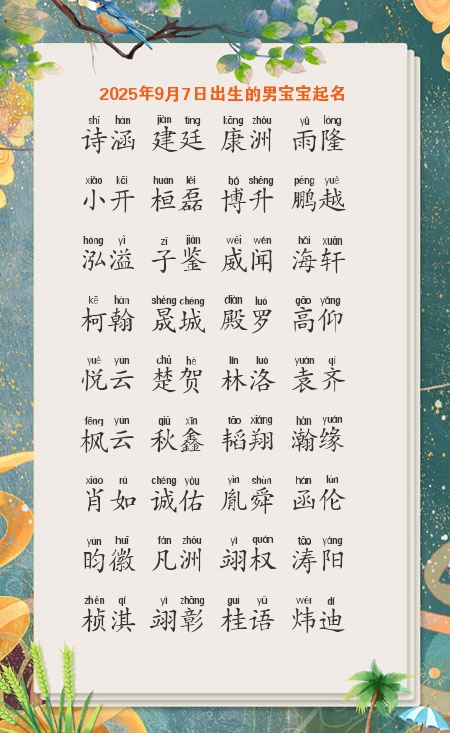 2025年9月7日出生的男宝宝起名
shī hán jiàn tíng kāng zhōu yǔ lóng
诗涵 建廷 康洲 雨隆
xiǎo kāi huán lěi bó shēng péng yuè
小开 桓磊 博升 鹏越
hóng yì zǐ jiàn wēi wén hǎi xuān
泓溢 子鉴 威闻 海轩
kē hàn shèng chéng diàn luó gāo yǎng
柯翰 晟城 殿罗 高仰
yuè yún chǔ hè lín luò yuán qí
悦云 楚贺 林洛 袁齐
fēng yún qiū xīn tāo xiáng hàn yuán
枫云 秋鑫 韬翔 瀚缘
xiào rú chéng yòu yìn shùn hán lún
肖如 诚佑 胤舜 函伦
yún huī fán zhōu yì quán tāo yáng
昀徽 凡洲 翊权 涛阳
zhēn qí yì zhāng guì yǔ wěi dí
桢淇 翊彰 桂语 炜迪